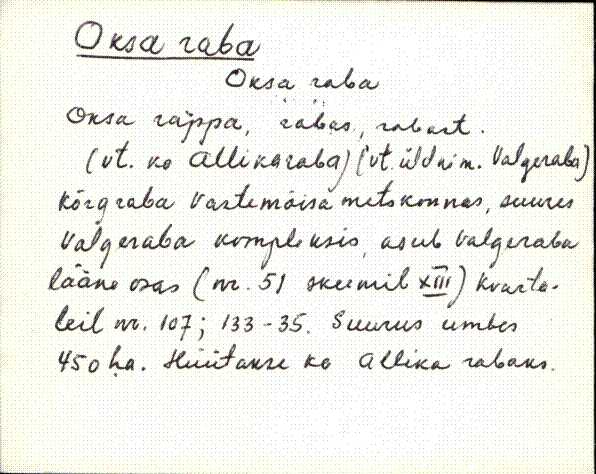 Oksa raba
Oksa raba
Oksa rappa, rabas, rabast.
(vt. ko Allikaraba) (vt. üldnim. Valgeraba)
kõrgraba Vastemõisa metskonnas, suures
Valgeraba kompleksis, asub Valgeraba
lääne osas (nr. 51 skeemil XIII) kvarta-
leil nr. 107; 133-35. Suurus umbes
450 ha. Hüütakse ko Allika rabaks.